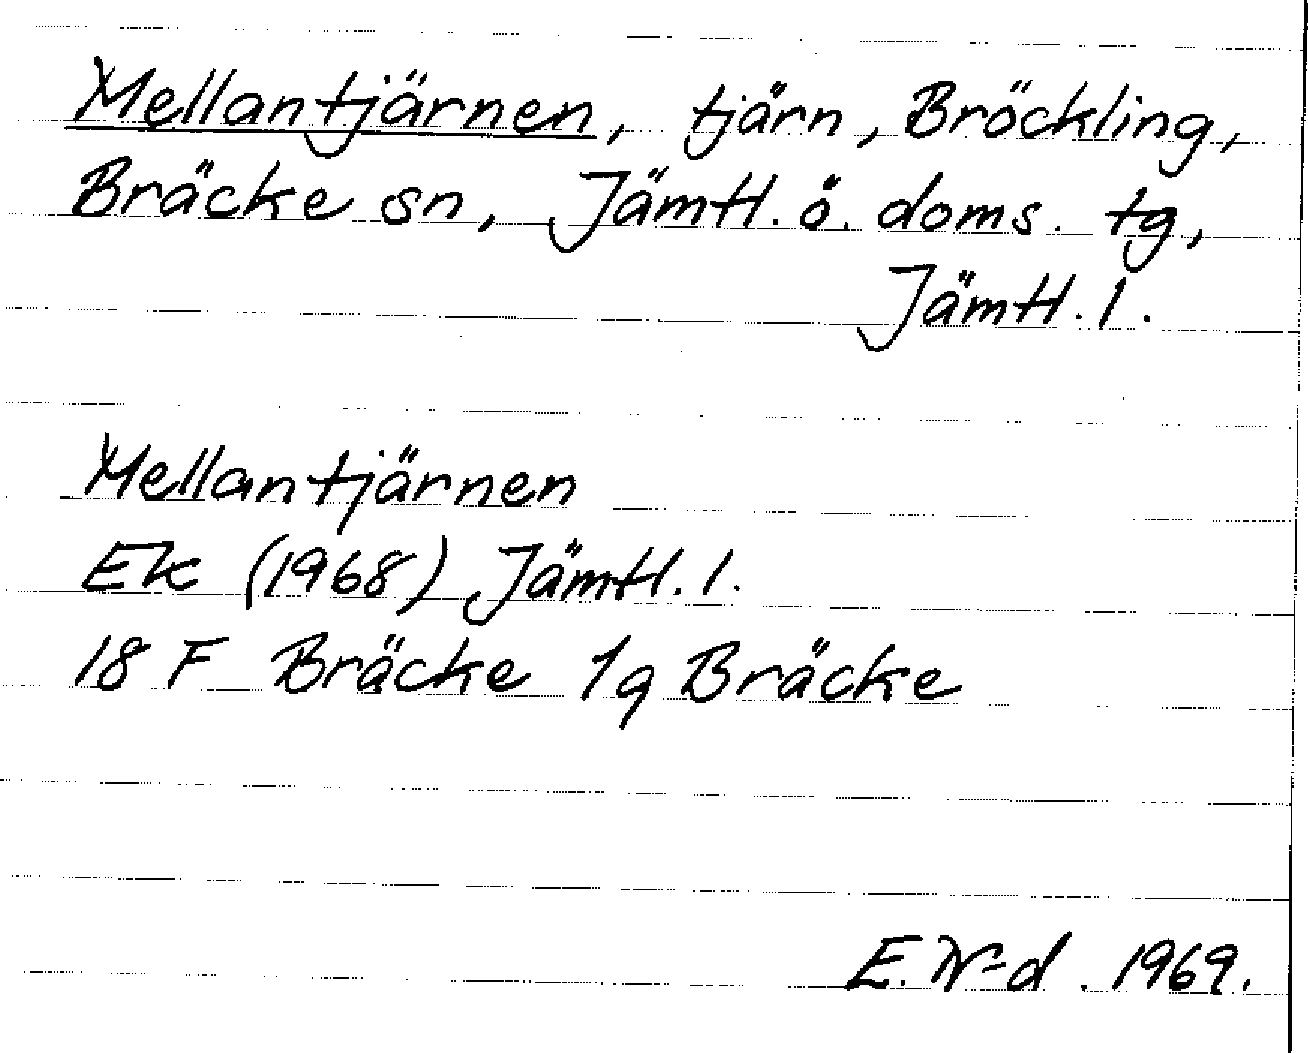 Mellantjärnen, tjärn, Bröckling,
Bräcke sn, Jämtl. ö. doms. tg,
Jämtl. l.
Mellantjärnen
Ek (1968) Jämtl. l.
18 F Bräcke 1g Bräcke
E. W-d. 1969.